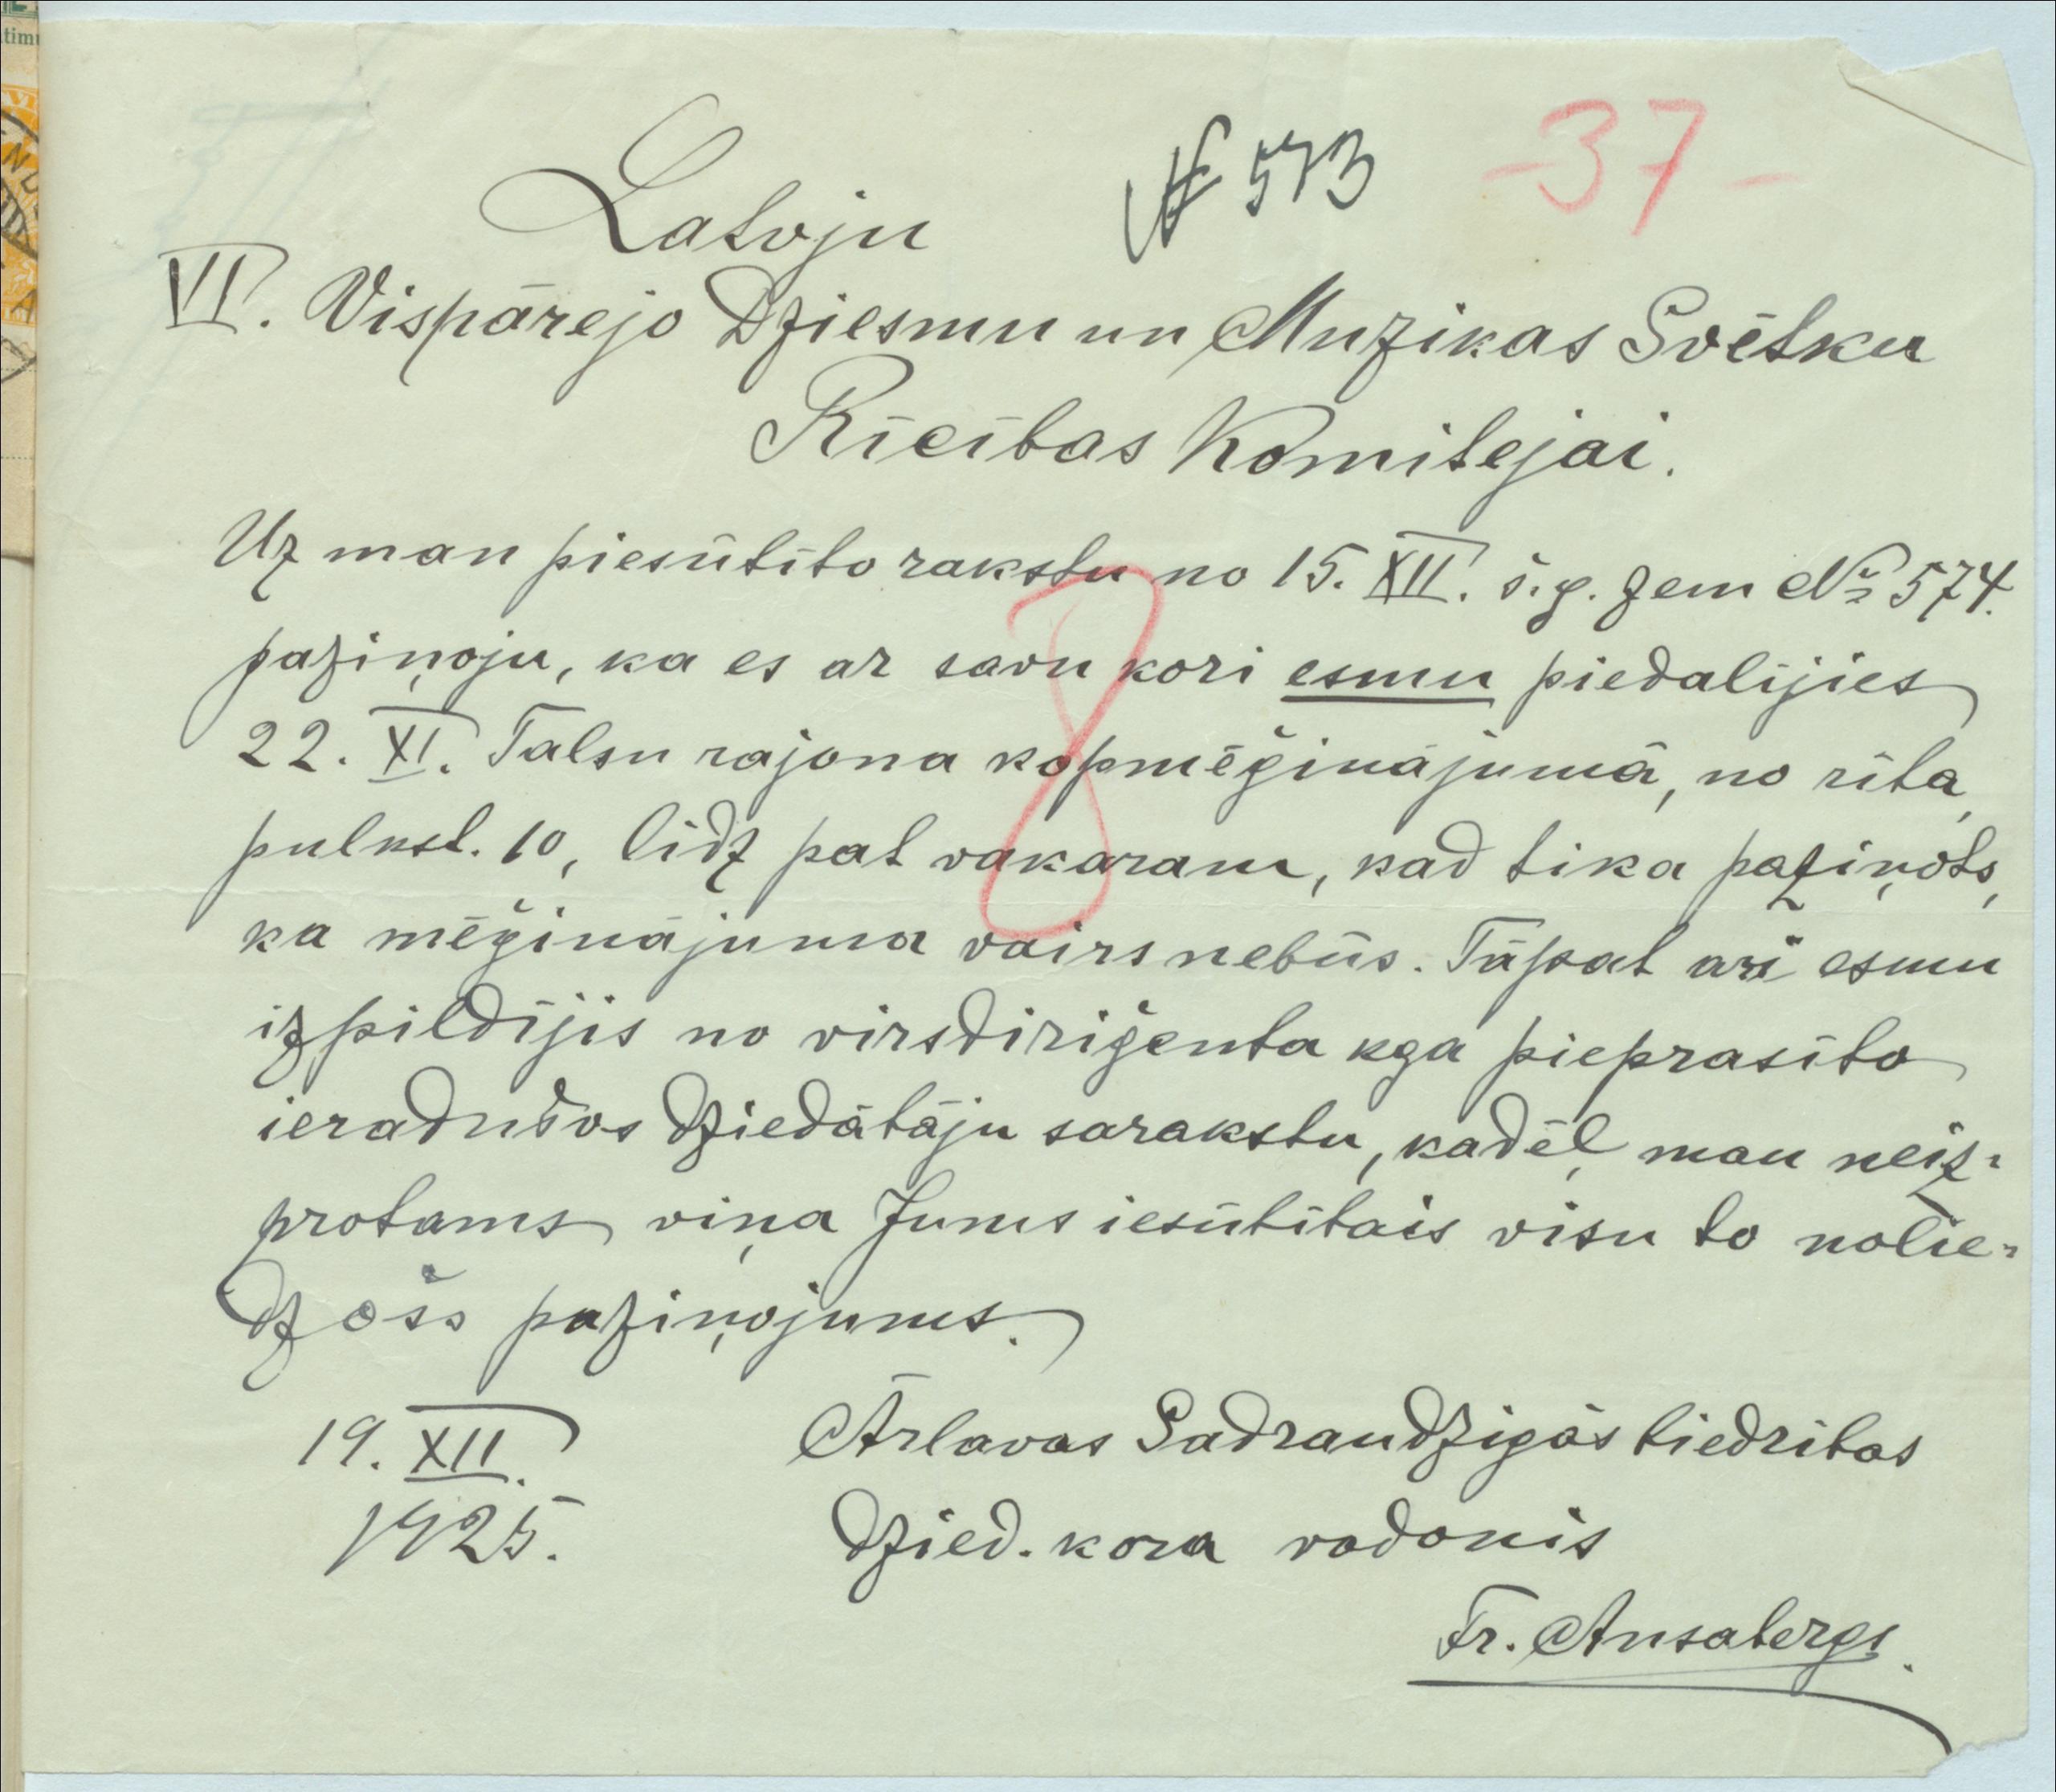 № 573 -37-
Latvju
VI. Vispārejo Dziesmu un Muzikas Svētku
Rīcības Komitejai.
Uz man piesūtīto rakstu no 15. XII. š.g. zem № 574.
paziņoju, ka es ar savu kori esmu piedalījies
22. XI. Talsu rajona kopmēģinājumā, no rīta
pulkst. 10, līdz pat vakaram, kad tika paziņots,
ka mēģinājuma vairs nebūs. Tāpat arī esmu
izpildījis no virsdiriģenta kga pieprasīto
ieradušos dziedātāju sarakstu, kadēļ man neiz-
protams viņa Jums iesūtītais visu to nolie-
dzošs paziņojums.
19. XII. Ārlavas Sadraudzigās biedribas
1925. dzied. kora vadonis
Fr. Ansabergs.
8